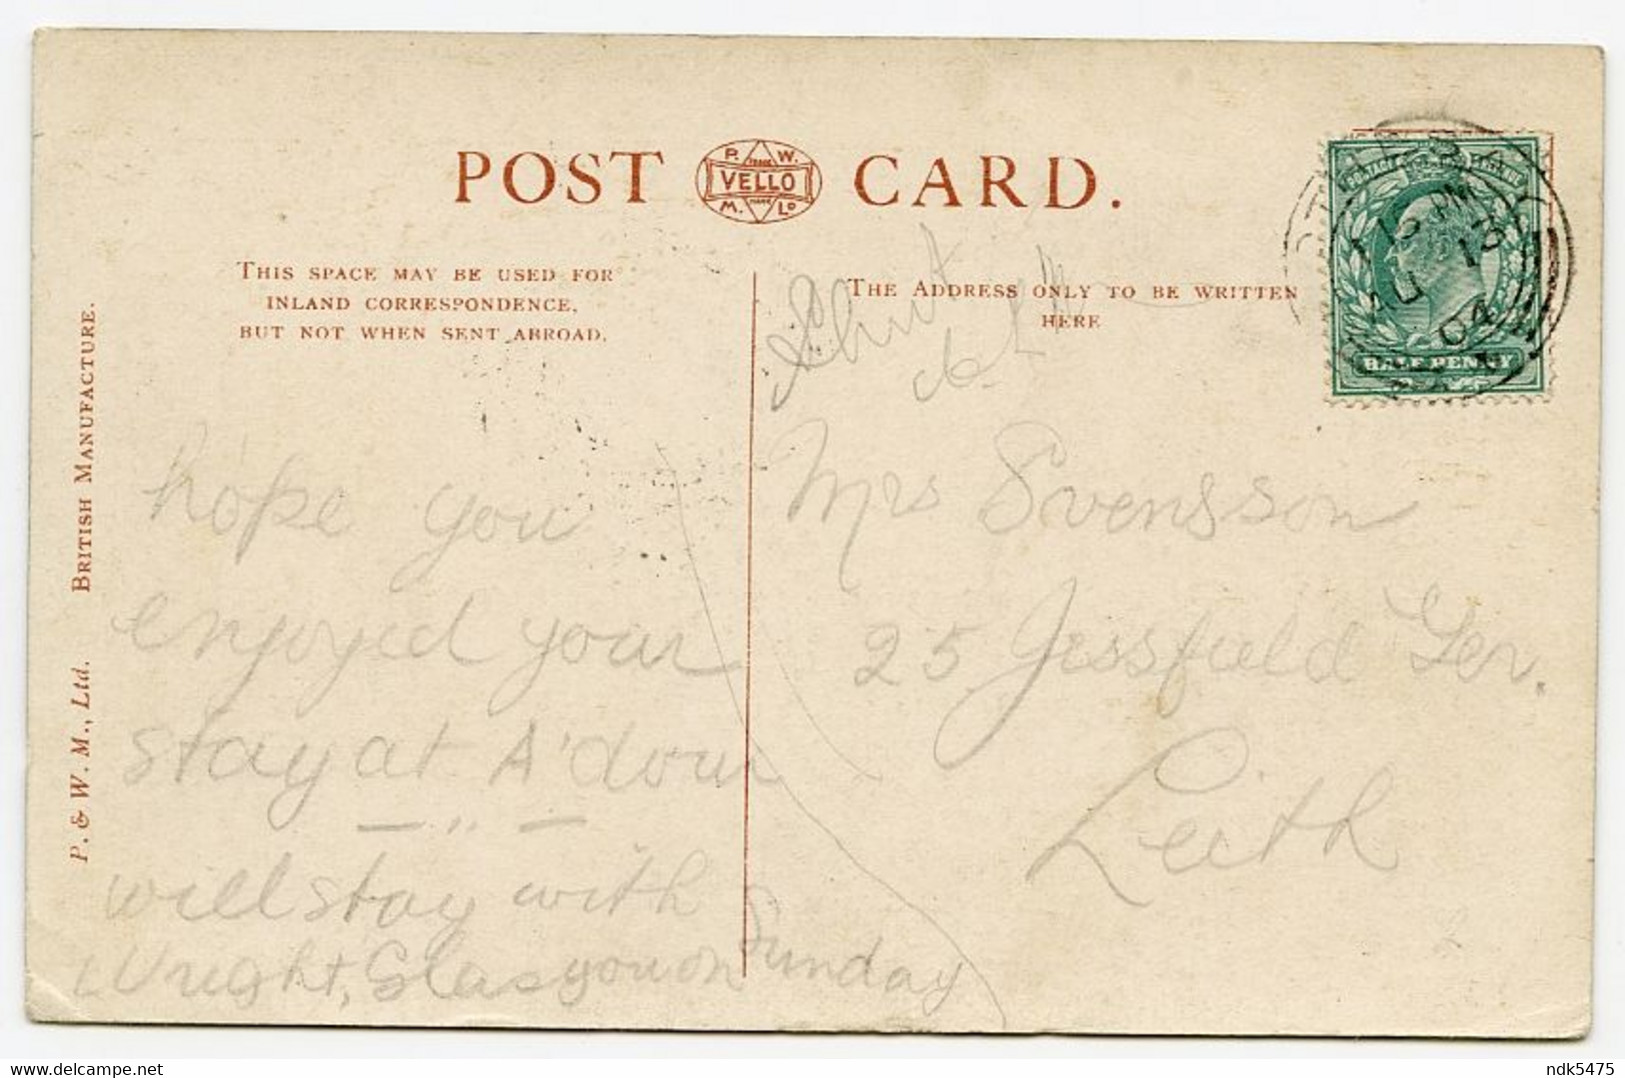 POST CARD.
P. W.
TRADE
VELLO
MARK
M. LD
THIS SPACE MAY BE USED FOR
INLAND CORRESPONDENCE,
BUT NOT WHEN SENT ABROAD.
THE ADDRESS ONLY TO BE WRITTEN
HERE
BRITISH MANUFACTURE.
P. & W. M., Ltd.
1 15 PM
AU 13
04
HALF PENNY
hope you
enjoyed your
stay at A'dour
will stay with
Wright, Glasgow on Sunday
Mrs Svensson
25 Jessfield Ter.
Leith
delcampe.net
ndk5475